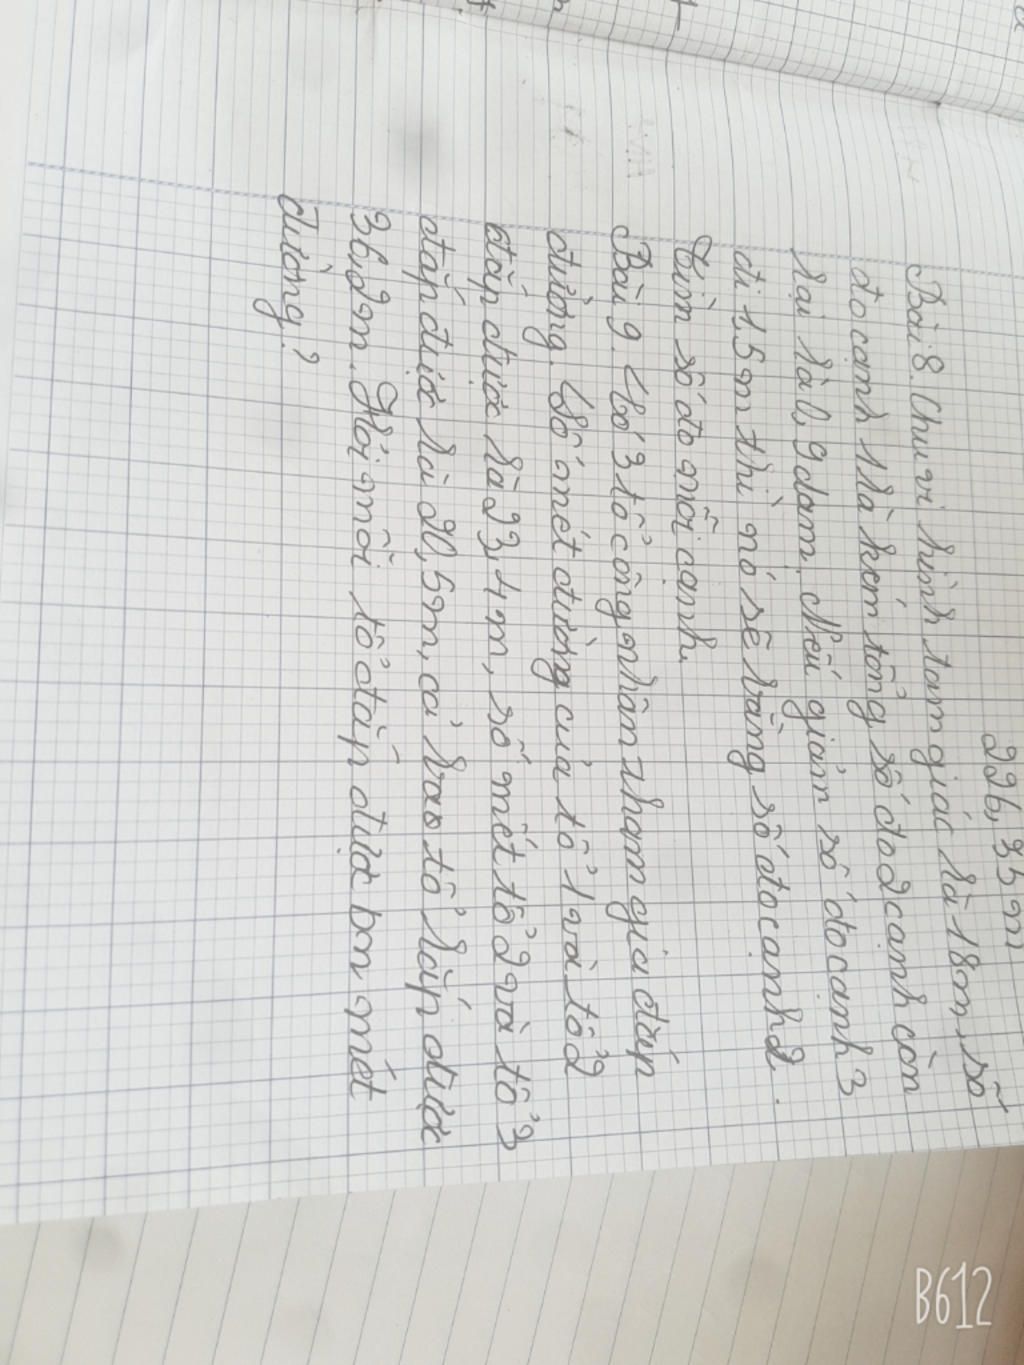 226,35m
Bài 8. Chu vi hình tam giác là 18m, số
đo cạnh 1 là kém tổng số đo 2 cạnh còn
lại là 0,9 dam. Nếu giảm số đo cạnh 3
đi 1,5m thì nó sẽ bằng số đo cạnh 2.
tìm số đo mỗi cạnh.
Bài 9. Có 3 tổ công nhân tham gia đáp
đường. Số mét đường của tổ 1 và tổ 2
đáp được là 23,4m, số mét tổ 2 và tổ 3
đắp được là 20,5m, cả ba tổ lắp được
36,2m. Hỏi mỗi tổ đáp được bn mét
đường?
B612